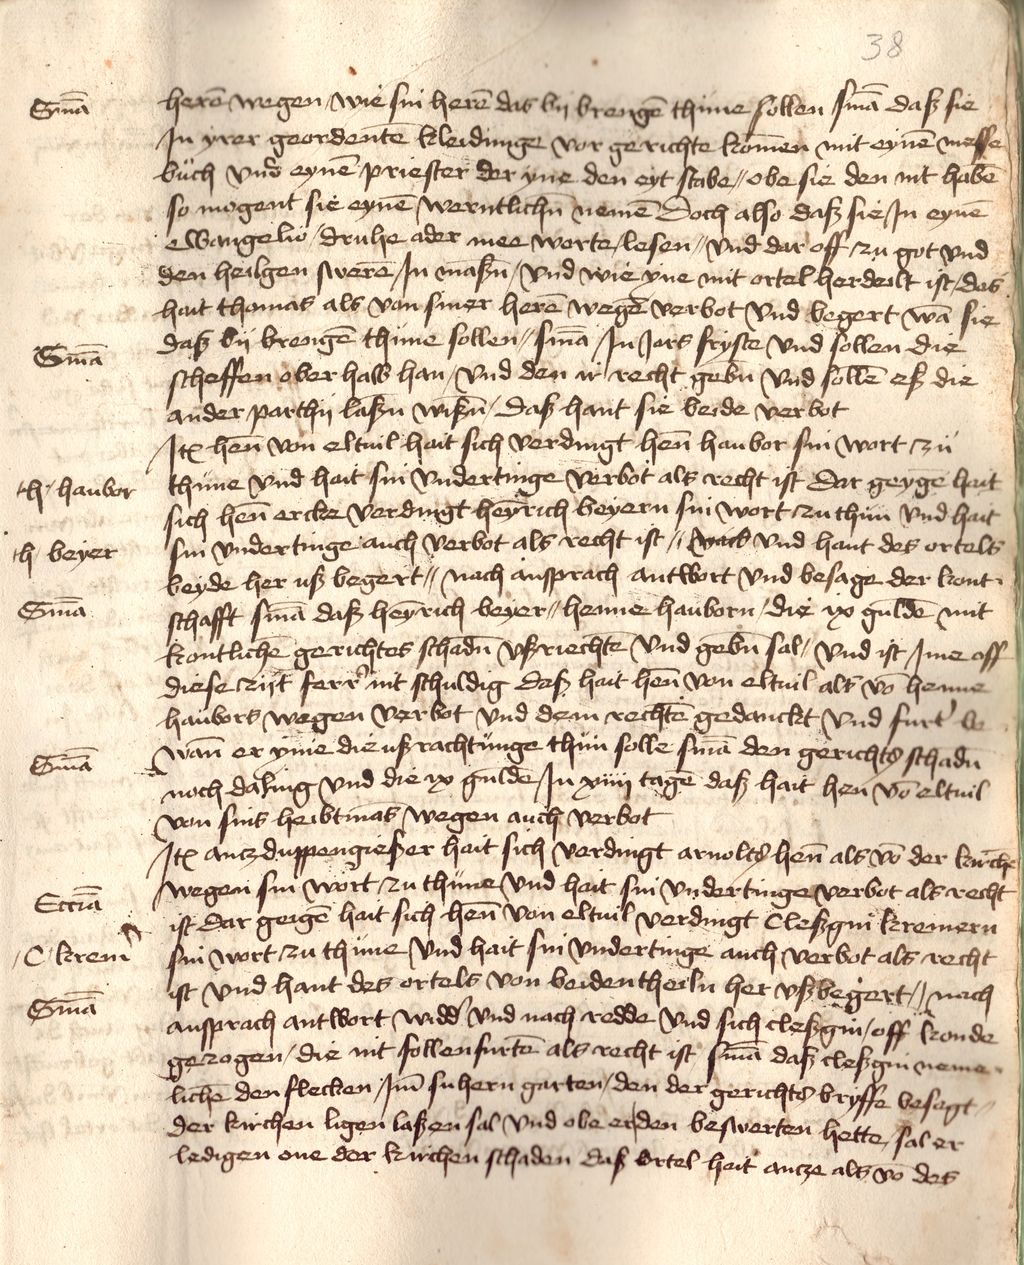 38
Snīa
herē wegen / wie sin herē das bij brengē thüne sollen snīa daß sie
In yrer geordentē kleidunge vor gerichte kōmen mit eynē messe
büch vnd eynē priester der yne den eyt stabe // obe sie den nit habē
so mogent sie eynē werntlichn̄ nemē Doch also daß sie In eynē
ewangelio / druhe ader mee worte / lesen // vnd dar off zu got vnd
den heilgen swerē / In māßn / vnd wie yne mit ortel herdeilt ist / das
hait thomas als von siner herē wegē verbot vnd begert wā sie
Snīa
daß bij brengē thüne sollen // snīa In Jars fryste vnd sollen die
scheffen oberhalb han / vnd den ir recht gebn vnd sollē eß die
ander parthij laßn wißn / daß hant sie beide verbot
Itē hen̄ von eltuil hait sich verdingt hen̄ haubor sin wort zu
h haubor
thüne vnd hait sin vndertinge verbot als recht ist Dar geygē hait
sich hen̄ ercke verdingt heyrich beyern sin wort zu thun vnd hait
h beyer
sin vndertinge auch verbot als recht ist // vnd hant des ortels
beyde her uß begert // nach ansprach antwort vnd besage der kont
Snīa
schafft snīa daß heyrich beyer // henne hauborn / die ix guldē mit
kontlichē gerichtes schadn̄ vßriechte vnd gebn̄ sal / vnd ist Ime off
diese zijt ferr' nit schuldig daß hait hen̄ von eltuil als vō henne
haubors wegen verbot vnd dem rechtē gedanckt vnd furt'
Snīa
wan̄ er yme die ußrachtunge thun solle snīa den gerichts schadn̄
noch daling vnd die ix guldē / In xiiij tagē daß hait hen vō eltuil
von sins heibtmās wegen auch verbot
Itē anczduppengießer hait sich verdingt arnolts hen̄ als vō der kirchē
wegen sin wort zu thüne vnd hait sin vndertinge verbot als recht
Eccīa
ist dar geigē hait sich hen̄ von eltuil verdingt Cleßgin kremern
C krem
sin wort zu thüne vnd hait sin vndertinge auch verbot als recht
Snīa
ist vnd hant des ortels von beidentheiln her vß begert // nach
ansprach antwort widd' vnd nach redde vnd sich cleßgin / off konde
gezogen / die nit sollenfurtē als recht ist snīa daß cleßgin neme
lichē den flecken / Im suhern garten / den der gerichts bryffe besagt
der kirchen ligen laßen sal vnd obe er den beswerten hette / sal er
ledigen one der kirchen schaden daß ortel hait ancze als vō des